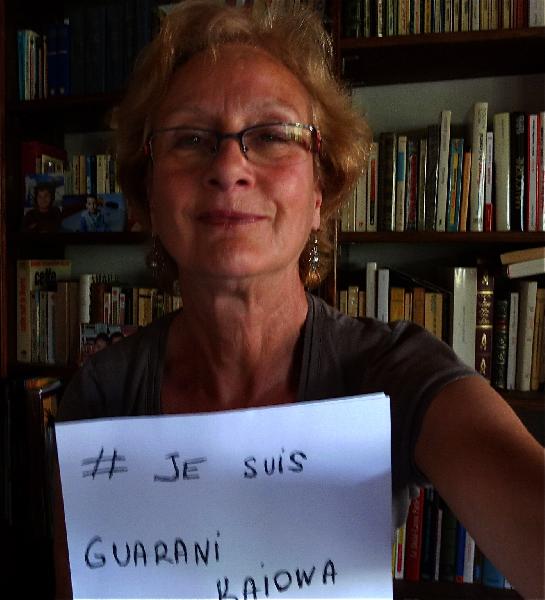 # JE SUIS
GUARANI
KAIOWA